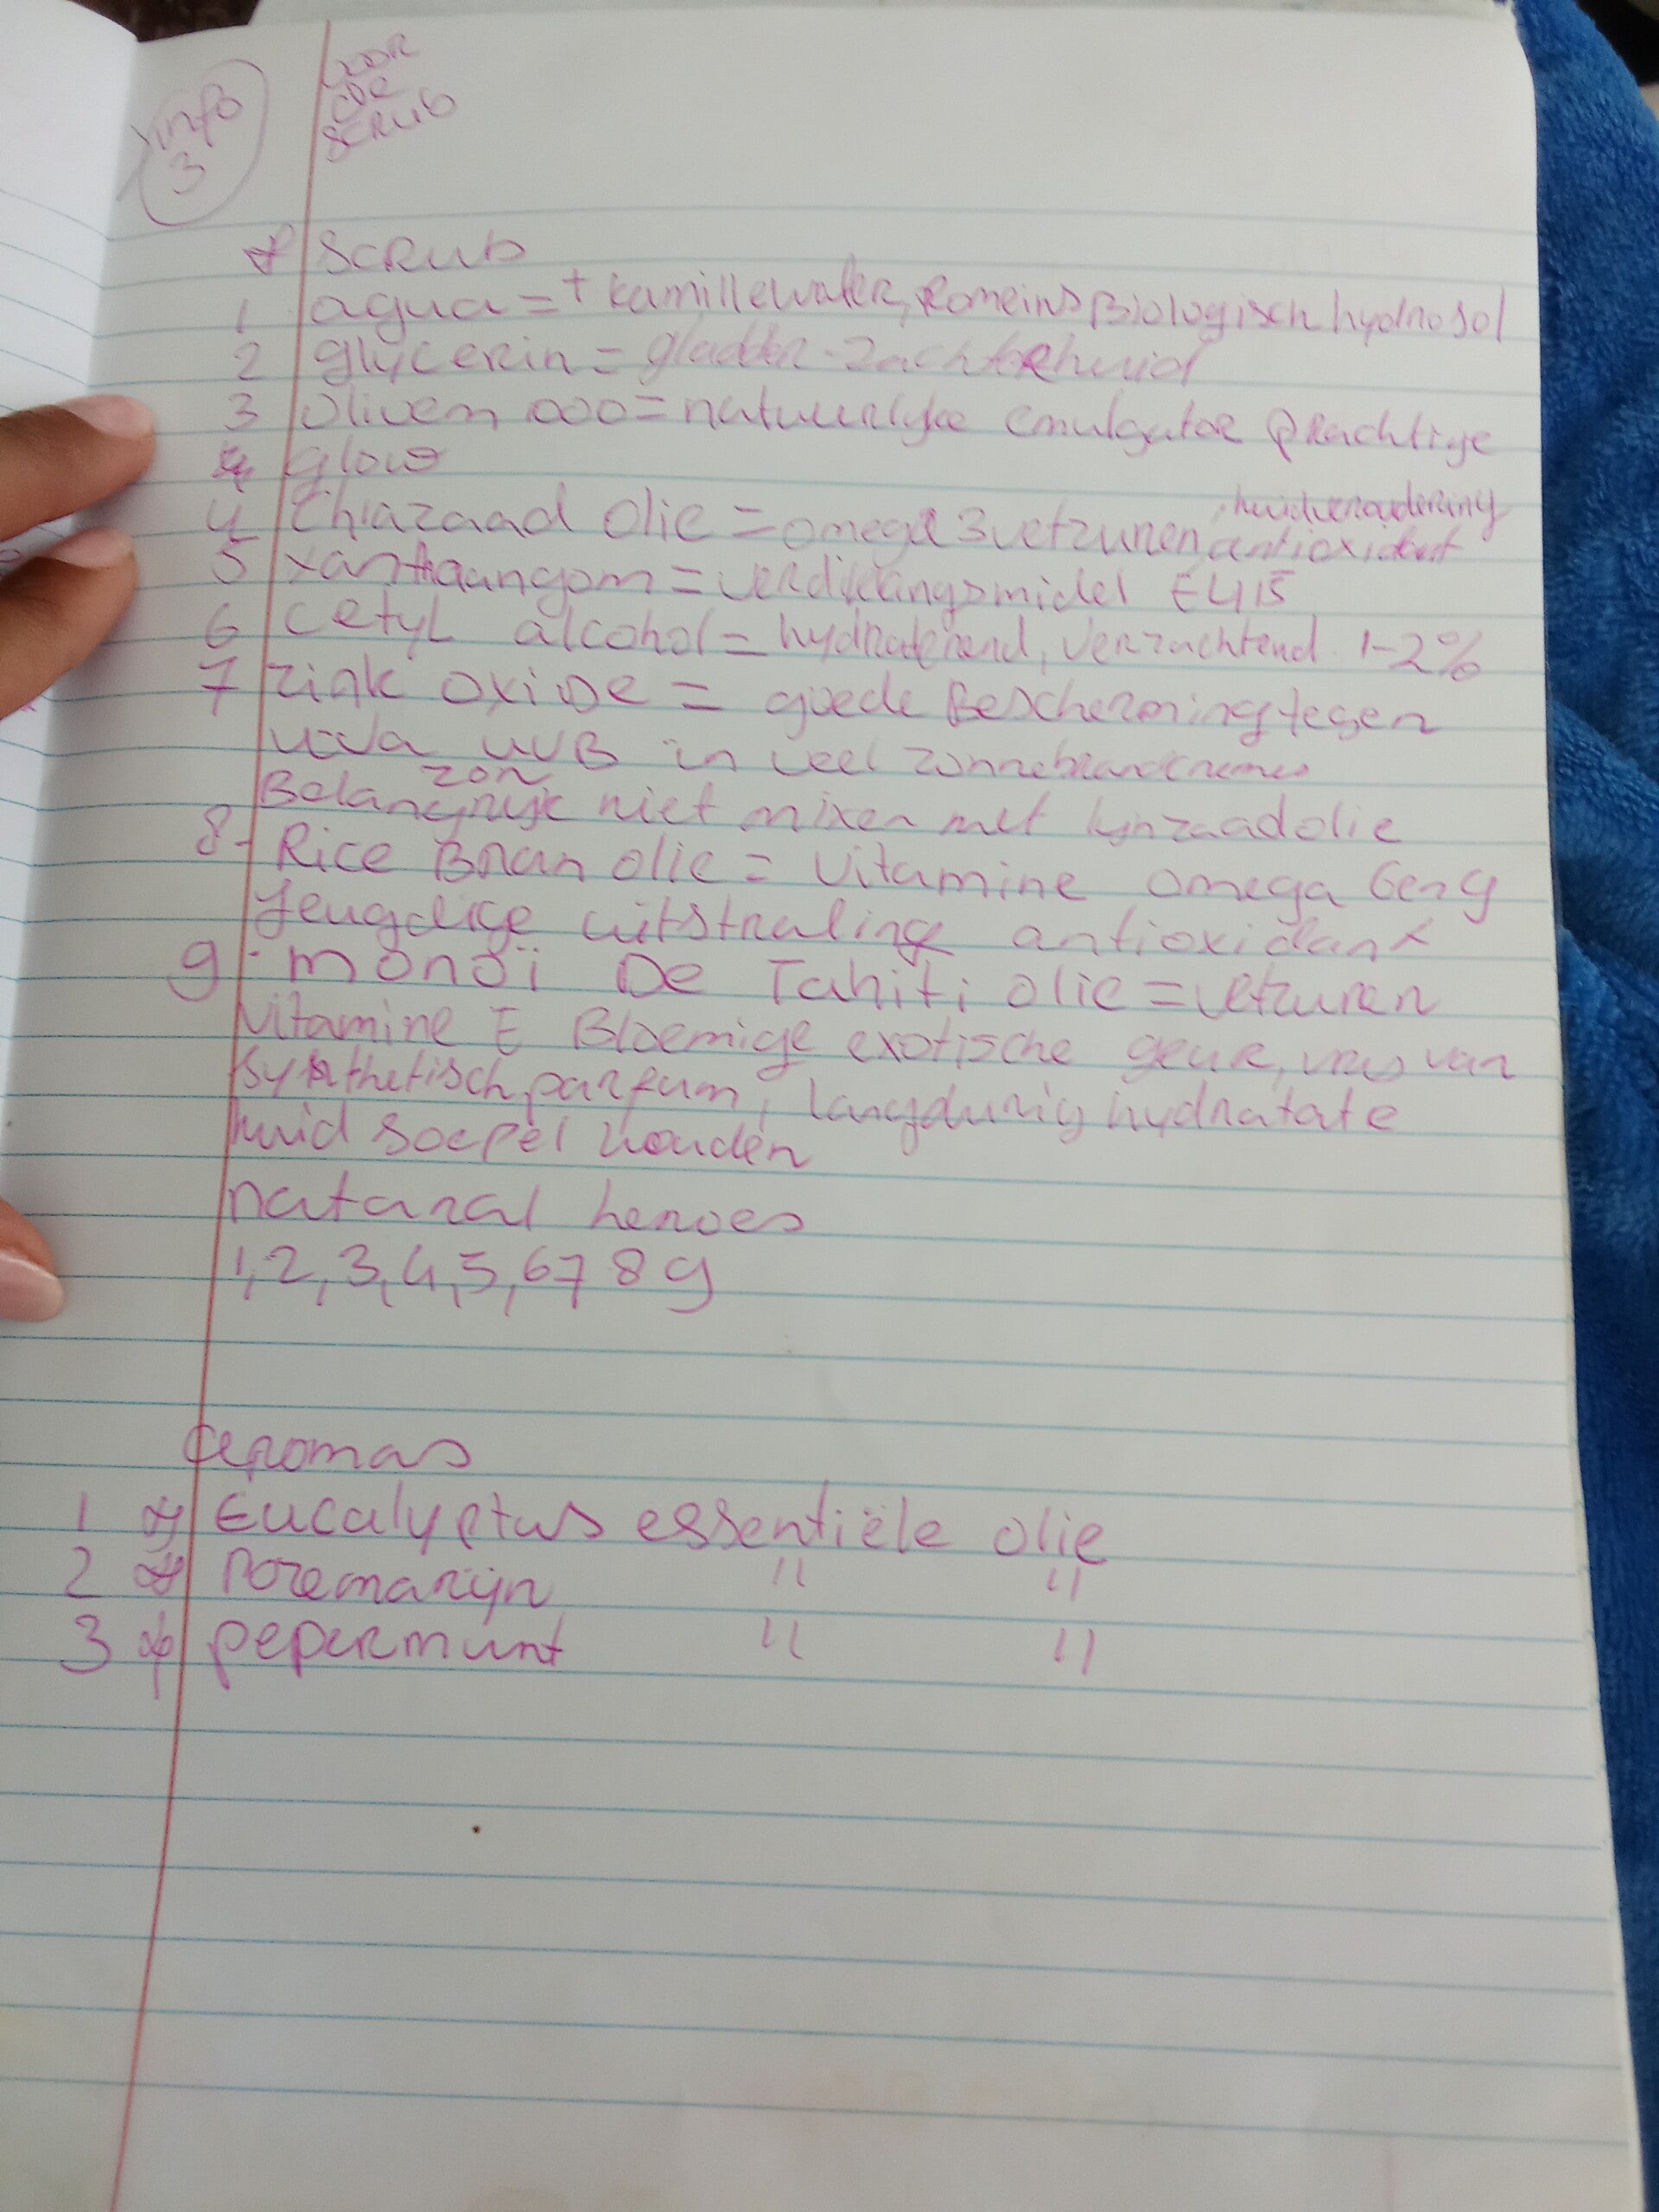 info
3
VOOR
DE
SCRUB
SCRUB
1 aqua = + Kamillewater, Romeins Biologisch hydrosol
2 glycerin = gladder - zachtere huid
3 olivem 1000 = natuurlyke emulgator prachtige
glow
4 Chiazaad olie = omega 3 vetzuren, huidveroudering
antioxidant
5 xanthaangom = verdikkingsmiddel E415
6 Cetyl alcohol = hydraterend, verzachtend. 1-2%
7 zink oxide = goede Bescherming tegen
uva uvB in veel zonnebrandcremes
zon
Belangryk niet mixen met lynzaadolie
8- Rice Bran olie = vitamine omega 6 en 9
Jeugdige uitstraling antioxidant
9. monoï De Tahiti olie = vetzuren
vitamine E Bloemige exotische geur, vrij van
synthetisch parfum, langdurig hydratatie
huid soepel houden
natural heroes
1,2,3,4,5,6 7 8 9
aromas
1 Eucalyptus essentiële olie
2 rozemarijn " "
3 pepermunt " "